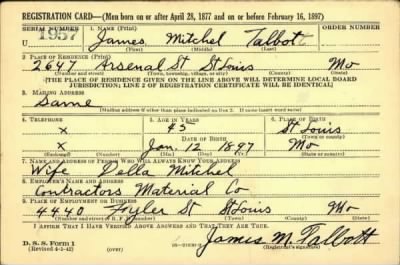 REGISTRATION CARD—(Men born on or after April 28, 1877 and on or before February 16, 1897)
SERIAL NUMBER 1. NAME (Print) ORDER NUMBER
U 1957 James Mitchel Talbott
(First) (Middle) (Last)
2. PLACE OF RESIDENCE (Print)
2647 Arsenal St St Louis Mo
(Number and street) (Town, township, village, or city) (County) (State)
[THE PLACE OF RESIDENCE GIVEN ON THE LINE ABOVE WILL DETERMINE LOCAL BOARD
JURISDICTION; LINE 2 OF REGISTRATION CERTIFICATE WILL BE IDENTICAL]
3. MAILING ADDRESS
Same
[Mailing address if other than place indicated on line 2. If same insert word same]
4. TELEPHONE 5. AGE IN YEARS 6. PLACE OF BIRTH
x 45 St Louis
DATE OF BIRTH (Town or county)
x Jan. 12 1897 Mo
(Exchange) (Number) (Mo.) (Day) (Yr.) (State or country)
7. NAME AND ADDRESS OF PERSON WHO WILL ALWAYS KNOW YOUR ADDRESS
Wife Della Mitchel
8. EMPLOYER'S NAME AND ADDRESS
Contractors Material Co
9. PLACE OF EMPLOYMENT OR BUSINESS
4440 Fyler St St Louis Mo
(Number and street or R. F. D. number) (Town) (County) (State)
I AFFIRM THAT I HAVE VERIFIED ABOVE ANSWERS AND THAT THEY ARE TRUE.
D. S. S. Form 1
(Revised 4-1-42) (over) James M. Talbott
(Registrant's signature)